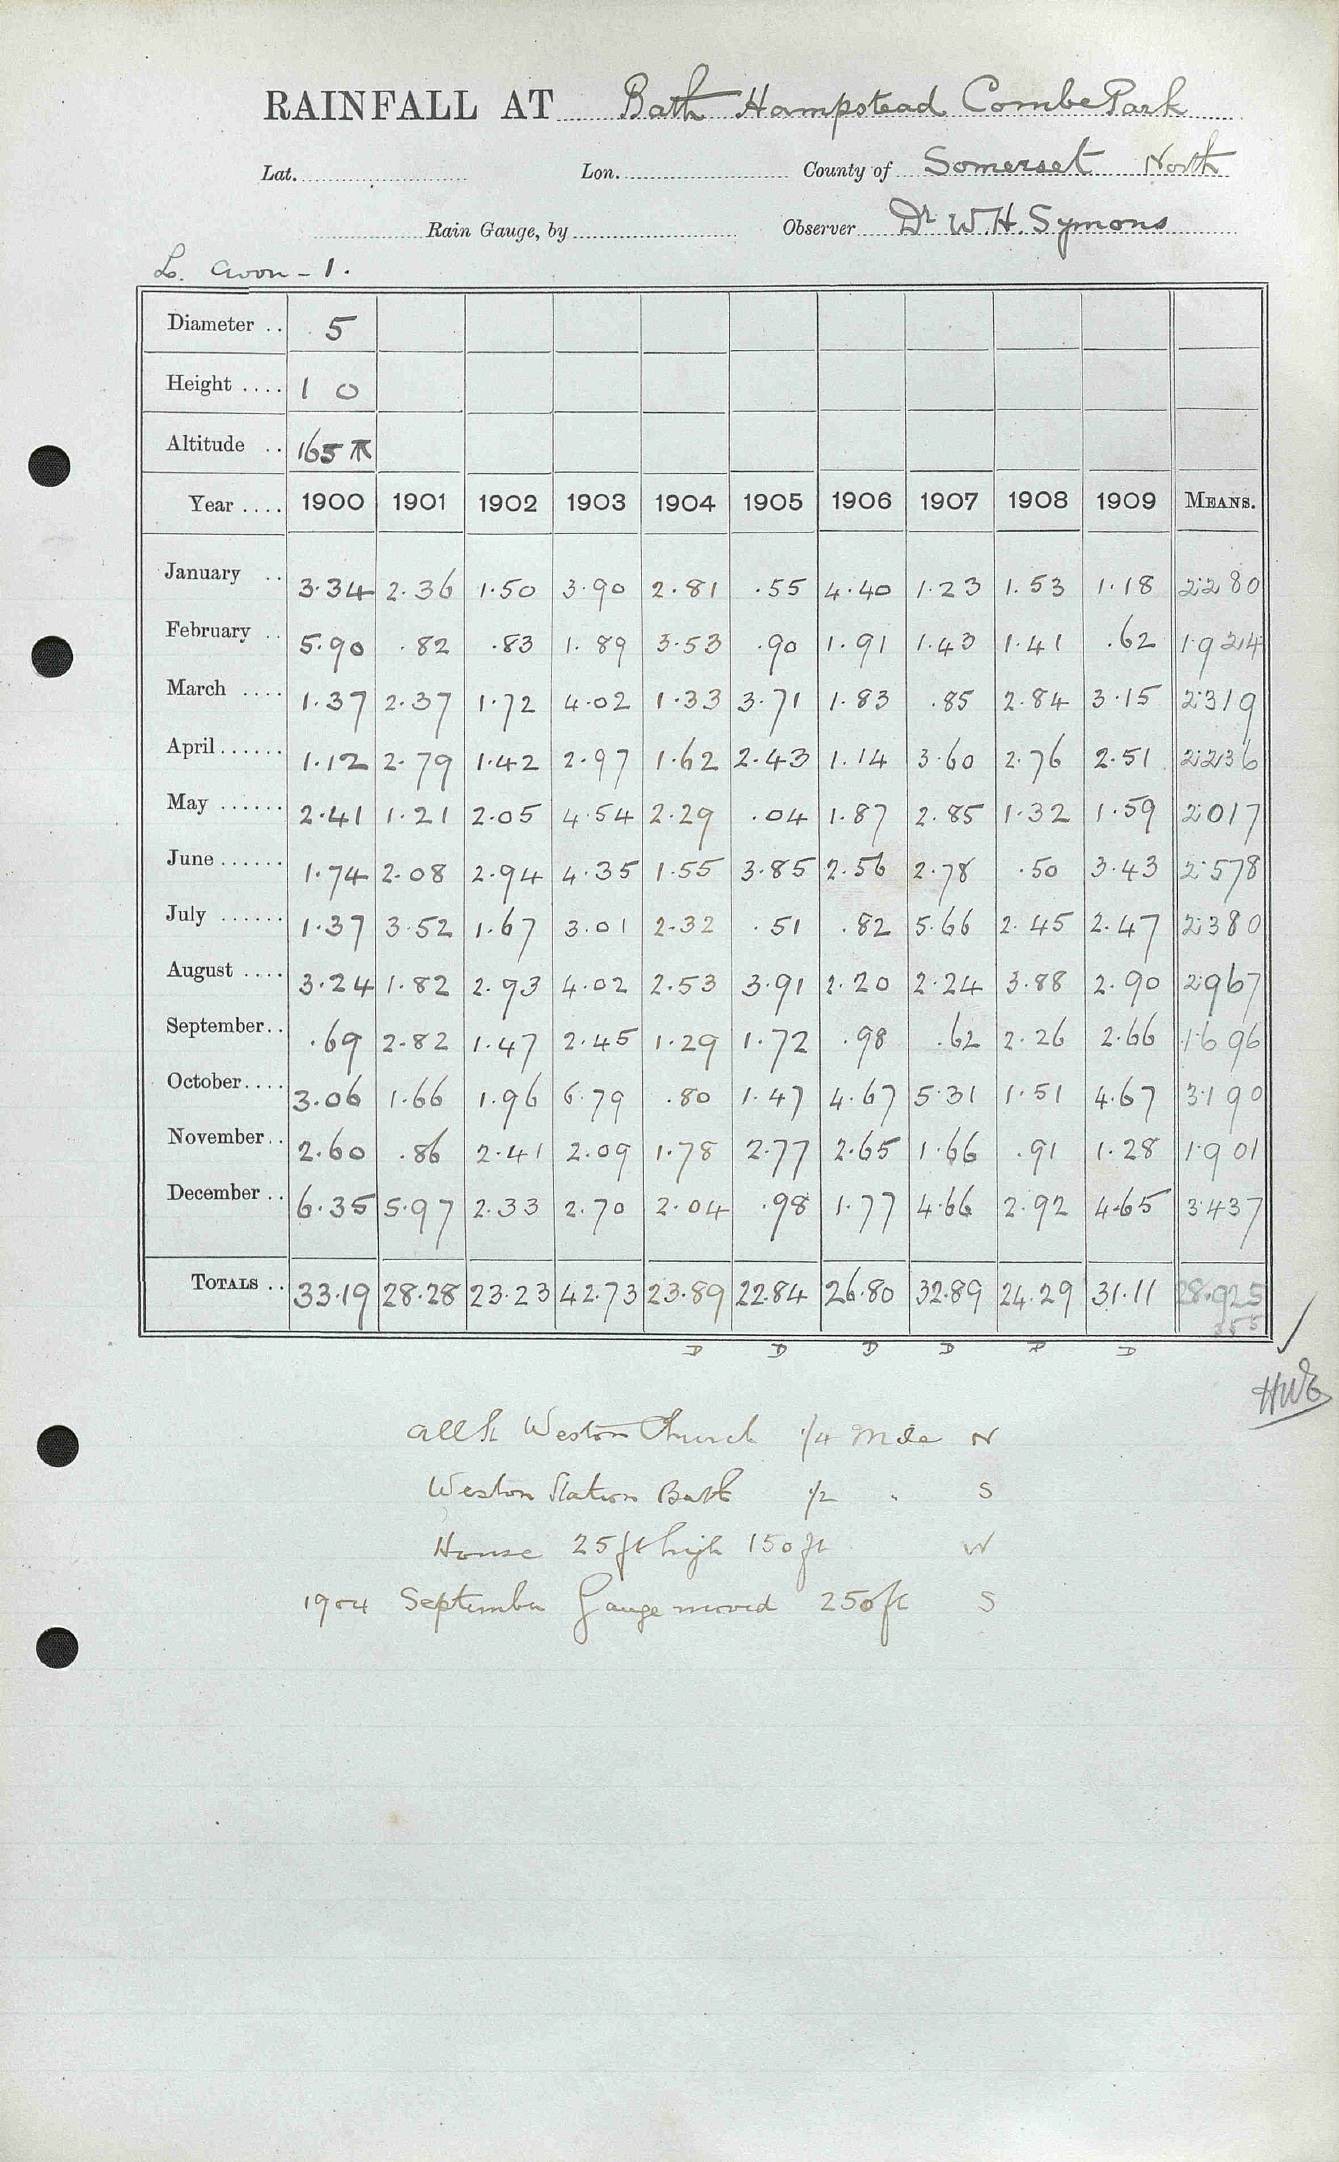 RAINFALL AT Bath Hampstead Combe Park
Lat. Lon. County of Somerset North
Rain Gauge, by Observer Dr W.H. Symons
L. Avon - 1.
Diameter .. 5
Height .... 1 0
Altitude .. 165 ft
Year .... 1900 1901 1902 1903 1904 1905 1906 1907 1908 1909 MEANS.
January .. 3.34 2.36 1.50 3.90 2.81 .55 4.40 1.23 1.53 1.18 2.280
February .. 5.90 .82 .83 1.89 3.53 .90 1.91 1.43 1.41 .62 1.924
March .... 1.37 2.37 1.72 4.02 1.33 3.71 1.83 .85 2.84 3.15 2.319
April ...... 1.12 2.79 1.42 2.97 1.62 2.43 1.14 3.60 2.76 2.51 2.236
May ...... 2.41 1.21 2.05 4.54 2.29 .04 1.87 2.85 1.32 1.59 2.017
June ...... 1.74 2.08 2.94 4.35 1.55 3.85 2.56 2.78 .50 3.43 2.578
July ...... 1.37 3.52 1.67 3.01 2.32 .51 .82 5.66 2.45 2.47 2.380
August .... 3.24 1.82 2.93 4.02 2.53 3.91 2.20 2.24 3.88 2.90 2.967
September .. .69 2.82 1.47 2.45 1.29 1.72 .98 .62 2.26 2.66 1.696
October .... 3.06 1.66 1.96 6.79 .80 1.47 4.67 5.31 1.51 4.67 3.190
November .. 2.60 .86 2.41 2.09 1.78 2.77 2.65 1.66 .91 1.28 1.901
December .. 6.35 5.97 2.33 2.70 2.04 .98 1.77 4.66 2.92 4.65 3.437
TOTALS .. 33.19 28.28 23.23 42.73 23.89 22.84 26.80 32.89 24.29 31.11 28.925
D D D D D D
Weston Church 1/4 Mile N
Weston Station Bath 1/2 " S
House 25 ft high 150 ft W
1904 September Gauge moved 250 ft S